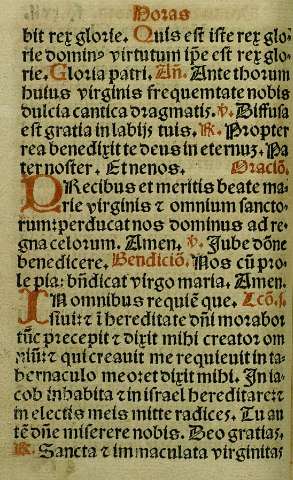 Horas
bit rex glorie. Quis est iste rex glo-
rie dominꝰ virtutum ip̄e est rex glo-
rie. Gloria patri. Añ. Ante thorum
huius virginis frequemtate nobis
dulcia cantica dragmatis. ℣. Diffusa
est gratia in labijs tuis. ℟. Propter
rea benedixit te deus in eternuz. Pa
ter noster. Et ne nos. Oració.
PRecibus et meritis beate ma-
rie virginis ⁊ omnium sancto-
rum: perducat nos dominus ad re-
gna celorum. Amen. ℣. Jube dõne
benedicere. Bendició. Nos cũ pro-
le pia: bñdicat virgo maria. Amen.
IN omnibus requiẽ que- Lcõ.j.
siui: ⁊ ĩ hereditate dñi morabor
tũc precepit ⁊ dixit mihi creator om
niũ: ⁊ qui creauit me requieuit in ta-
bernaculo meo: et dixit mihi. In ia-
cob inhabita ⁊ in israel hereditare: ⁊
in electis meis mitte radices. Tu au
tẽ dñe miserere nobis. Deo gratias.
℟. Sancta ⁊ immaculata virginitas